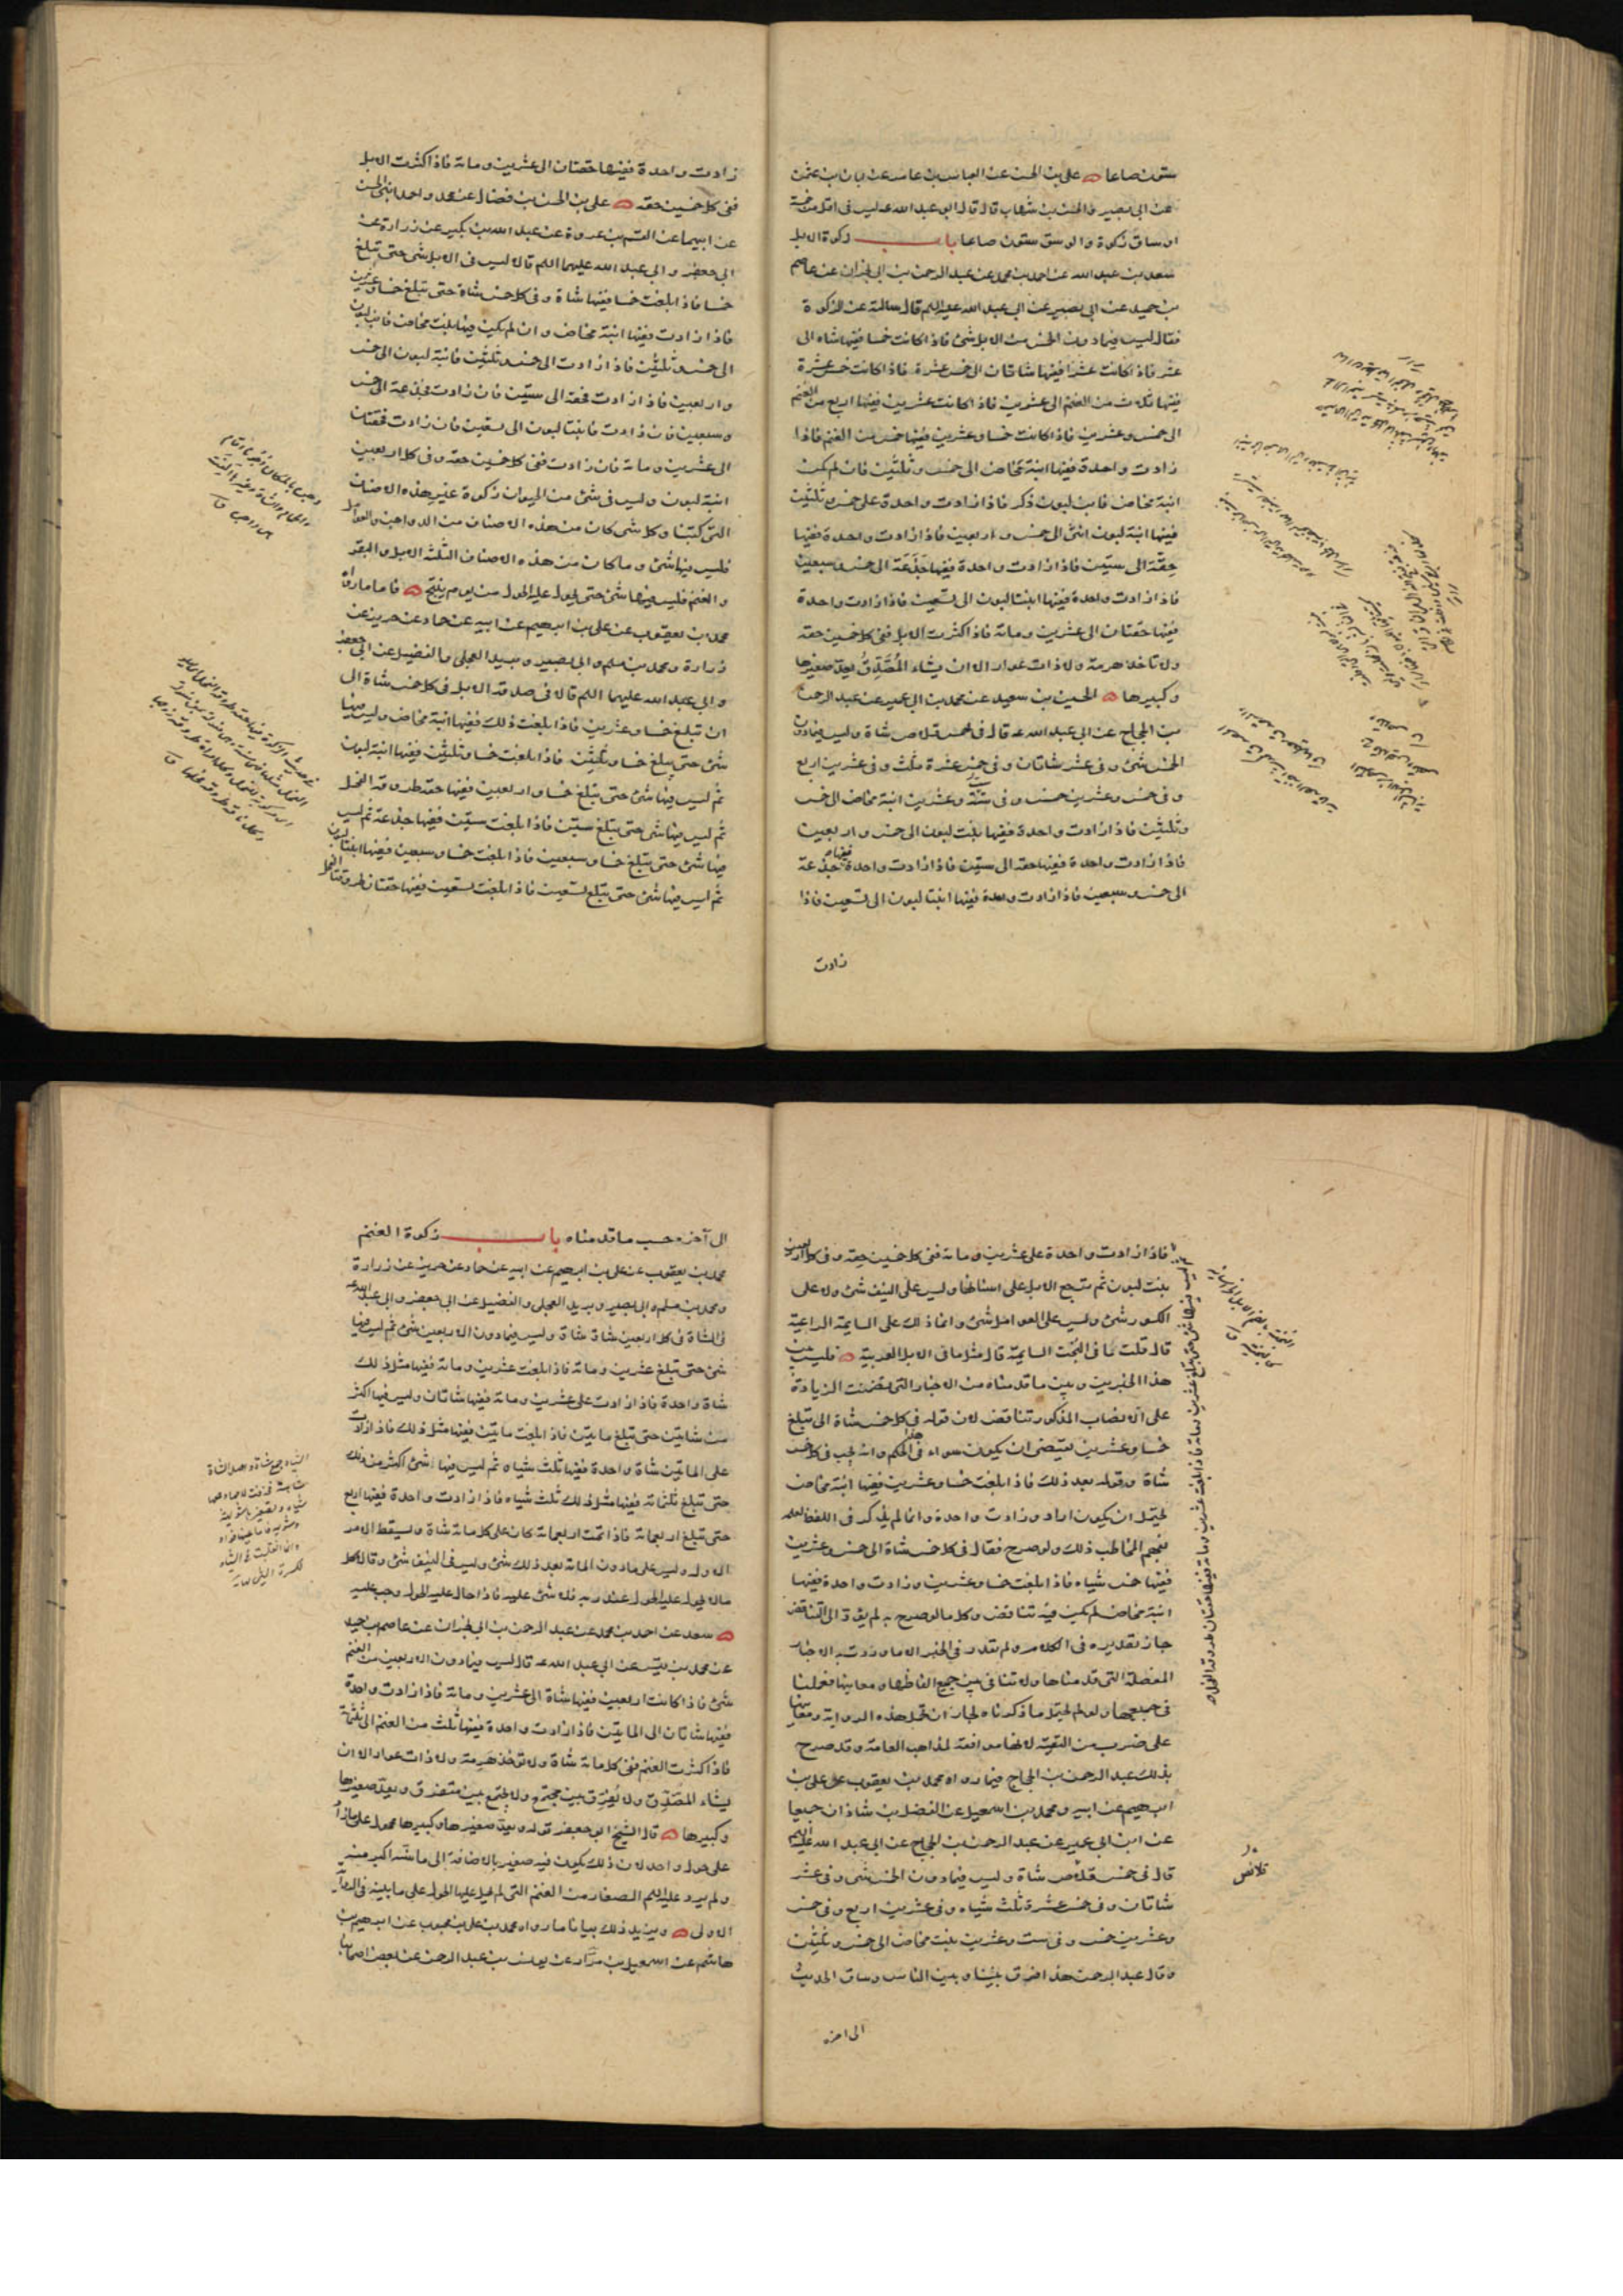 ستون صاعا علي بن الحسن عن العباس بن عامر عن ابان بن عثمن
عن ابي بصير والحسن بن شهاب قالا قال ابو عبد الله عه ليس في اقل من خمسة
اوساق زكوة والوسق ستون صاعا باب زكوة الابل
سعد بن عبد الله عن احمد بن محمد عن عبد الرحمن بن ابي نجران عن عاصم
بن حميد عن ابي بصير عن ابي عبد الله عليه السلم قال سالته عن الزكوة
فقال ليس فيما دون الخمس من الابل شئ فاذا كانت خمسا ففيها شاه الى
عشر فاذا كانت عشرا ففيها شاتان الى خمس عشرة فاذا كانت خمس عشرة
ففيها ثلاث من الغنم الى عشرين فاذا كانت عشرين ففيها اربع من الغنم
الى خمس وعشرين فاذا كانت خمسا وعشرين ففيها خمس من الغنم فاذا
زادت واحدة ففيها ابنة مخاض الى خمس وثلثين فان لم يكن
ابنة مخاض فابن لبون ذكر فاذا زادت واحدة على خمس وثلثين
ففيها ابنة لبون انثى الى خمس واربعين فاذا زادت واحدة ففيها
حقة الى ستين فاذا زادت واحدة ففيها جذعة الى خمس وسبعين
فاذا زادت واحدة ففيها ابنتا لبون الى تسعين فاذا زادت واحدة
ففيها حقتان الى عشرين ومائة فاذا كثرت الابل ففي كل خمسين حقه
ولا تاخذ هرمة ولا ذات عوار الا ان يشاء المصدق يعد صغيرها
وكبيرها الحسين بن سعيد عن محمد بن ابي عمير عن عبد الرحمن
بن الحجاج عن ابي عبد الله عه قال في خمس قلاص شاة وليس فيما دون
الخمس شئ وفي عشر شاتان وفي خمس عشرة ثلث وفي عشرين اربع
وفي خمس وعشرين خمس وفي ستة وعشرين ابنة مخاض الى خمس
وثلثين فاذا زادت واحدة ففيها بنت لبون الى خمس واربعين
فاذا زادت واحدة ففيها حقه الى ستين فاذا زادت واحدة ففيها جذعة
الى خمس وسبعين فاذا زادت واحدة ففيها ابنتا لبون الى تسعين فاذا
زادت
زادت واحدة ففيها حقتان الى عشرين ومائة فاذا كثرت الابل
ففي كل خمسين حقه علي بن الحسن بن فضال عن محمد واحمد ابني الحسن
عن ابيهما عن القسم بن عروة عن عبد الله بن بكير عن زرارة عن
ابي جعفر وابي عبد الله عليهما السلم قالا ليس في الابل شئ حتى تبلغ
خمسا فاذا بلغت خمسا ففيها شاة وفي كل خمس شاة حتى تبلغ خمسا وعشرين
فاذا زادت ففيها ابنة مخاض وان لم يكن فيها بنت مخاض فابن لبون
الى خمس وثلثين فاذا زادت الى خمس وثلثين فابنة لبون الى خمس
واربعين فاذا زادت فحقة الى ستين فان زادت فجذعة الى خمس
وسبعين فان زادت فابنتا لبون الى تسعين فان زادت فحقتان
الى عشرين ومائة فان زادت ففي كل خمسين حقه وفي كل اربعين
ابنة لبون وليس في شئ من الحيوان زكوة غير هذه الاصناف
التي كتبنا وكل شئ كان من هذه الاصناف من الدواجن والعوامل
فليس فيها شئ وما كان من هذه الاصناف الثلثة الابل والبقر
والغنم فليس فيها شئ حتى يحول عليه الحول من يوم ينتج فاما ما رواه
محمد بن يعقوب عن علي بن ابرهيم عن ابيه عن حماد عن حريز عن
زرارة ومحمد بن مسلم وابي بصير وبريد العجلي والفضيل عن ابي جعفر
وابي عبد الله عليهما السلم قالا في صدقة الابل في كل خمس شاة الى
ان تبلغ خمسا وعشرين فاذا بلغت ذلك ففيها ابنة مخاض وليس فيها
شئ حتى يبلغ خمسا وثلثين فاذا بلغت خمسا وثلثين ففيها ابنة لبون
ثم ليس فيها شئ حتى يبلغ خمسا واربعين ففيها حقه طروقة الفحل
ثم ليس فيها شئ حتى يبلغ ستين فاذا بلغت ستين ففيها جذعة ثم ليس
فيها شئ حتى يبلغ خمسا وسبعين فاذا بلغت خمسا وسبعين ففيها ابنتا لبون
ثم ليس فيها شئ حتى يبلغ تسعين فاذا بلغت تسعين ففيها حقتان طروقتا الفحل
ثم ليس فيها شئ حتى يبلغ عشرين ومائة فاذا بلغت عشرين ومائة ففيها حقتان طروقة الفحل
فاذا زادت واحدة على عشرين ومائة ففي كل خمسين حقه وفي كل اربعين
بنت لبون ثم ترجع الابل على اسنانها وليس على النيف شئ ولا على
الكسور شئ وليس على العوامل شئ وانما ذلك على السايمة الراعية
قال قلت ما في البخت السايمة قال مثل ما في الابل العربية فليس بين
هذا الخبرين وبين ما قدمناه من الاخبار التي تضمنت الزيادة
على انه نصاب المذكور تناقض لان قوله في كل خمس شاة الى تبلغ
خمسا وعشرين يقتضى ان يكون سواء في هذا الحكم وانه يجب في كل خمس
شاة وقوله بعد ذلك فاذا بلغت خمسا وعشرين ففيها ابنة مخاض
يحتمل ان يكون اراد وزادت واحدة وانما لم يذكر في اللفظ لعلمه
بفهم المخاطب ذلك ولو صرح فقال في كل خمس شاة الى خمس وعشرين
ففيها خمس شياه فاذا بلغت خمسا وعشرين وزادت واحدة ففيها
ابنة مخاض لم يكن فيه تناقض وكل ما لو صرح به لم يؤد الى التناقض
جاز تقديره في الكلام ولم نقدر في الخبر الا ما وردت به الاخبار
المفصلة التي قدمناها ولا تنافي بين جميع الفاظها ومعانيها فعملنا
في جميعها ولو لم يحتمل ما ذكرناه لجاز ان تحمل هذه الرواية
على ضرب من التقية لانها موافقة لمذاهب العامة وقد صرح
بذلك عبد الرحمن بن الحجاج فيما رواه محمد بن يعقوب عن علي بن
ابرهيم عن ابيه ومحمد بن اسمعيل عن الفضل بن شاذان جميعا
عن ابن ابي عمير عن عبد الرحمن بن الحجاج عن ابي عبد الله عليه السلم
قال في خمس قلاص شاة وليس فيما دون الخمس شئ وفي عشر
شاتان وفي خمس عشرة ثلث شياه وفي عشرين اربع وفي خمس
وعشرين خمس وفي ست وعشرين بنت مخاض الى خمس وثلثين
وقال عبد الرحمن هذا فرق بيننا وبين الناس وساق الحديث
الى اخره
قلائص
الى آخره حسب ما قدمناه باب زكوة الغنم
محمد بن يعقوب عن علي بن ابرهيم عن ابيه عن حماد عن حريز عن زرارة
ومحمد بن مسلم وابي بصير وبريد العجلي والفضيل عن ابي جعفر وابي عبد الله عه
في الشاة في كل اربعين شاة شاة وليس فيما دون الاربعين شئ ثم ليس فيها
شئ حتى تبلغ عشرين ومائة فاذا بلغت عشرين ومائة ففيها مثل ذلك
شاة واحدة فاذا زادت على عشرين ومائة ففيها شاتان وليس فيها اكثر
من شاتين حتى تبلغ مايتين فاذا بلغت مايتين ففيها مثل ذلك فاذا زادت
على المائتين شاة واحدة ففيها ثلث شياه ثم ليس فيها شئ اكثر من ذلك
حتى تبلغ ثلثمائة ففيها مثل ذلك ثلث شياه فاذا زادت واحدة ففيها اربع
حتى تبلغ اربعمائة فاذا تمت اربعمائة كان على كل مائة شاة ويسقط الامر
الاول وليس على ما دون المائة بعد ذلك شئ وليس في النيف شئ وقالا كل
مال لم يحل عليه الحول عند ربه فلا شئ عليه فاذا حال عليه الحول وجب عليه
سعد عن احمد بن محمد عن عبد الرحمن بن ابي نجران عن عاصم بن حميد
عن محمد بن قيس عن ابي عبد الله عه قال ليس فيما دون الاربعين من الغنم
شئ فاذا كانت اربعين ففيها شاة الى عشرين ومائة فاذا زادت واحدة
ففيها شاتان الى المايتين فاذا زادت واحدة ففيها ثلث من الغنم الى ثلثمائة
فاذا كثرت الغنم ففي كل مائة شاة ولا تؤخذ هرمة ولا ذات عوار الا ان
يشاء المصدق ولا يفرق بين مجتمع ولا يجمع بين متفرق ويعد صغيرها
وكبيرها قال الشيخ ابو جعفر قوله ويعد صغيرها وكبيرها محمول على ما زاد
على حول واحد لان ذلك يكون فيه صغير بالاضافة الى ما سنه اكبر منه
ولم يرد عليه السلم الصغار من الغنم التي لم يحل عليها الحول على ما بينه في الرواية
الاولى ويزيد ذلك بيانا ما رواه محمد بن علي بن محبوب عن ابرهيم بن
هاشم عن اسمعيل بن مرار عن يونس بن عبد الرحمن عن بعض اصحابنا